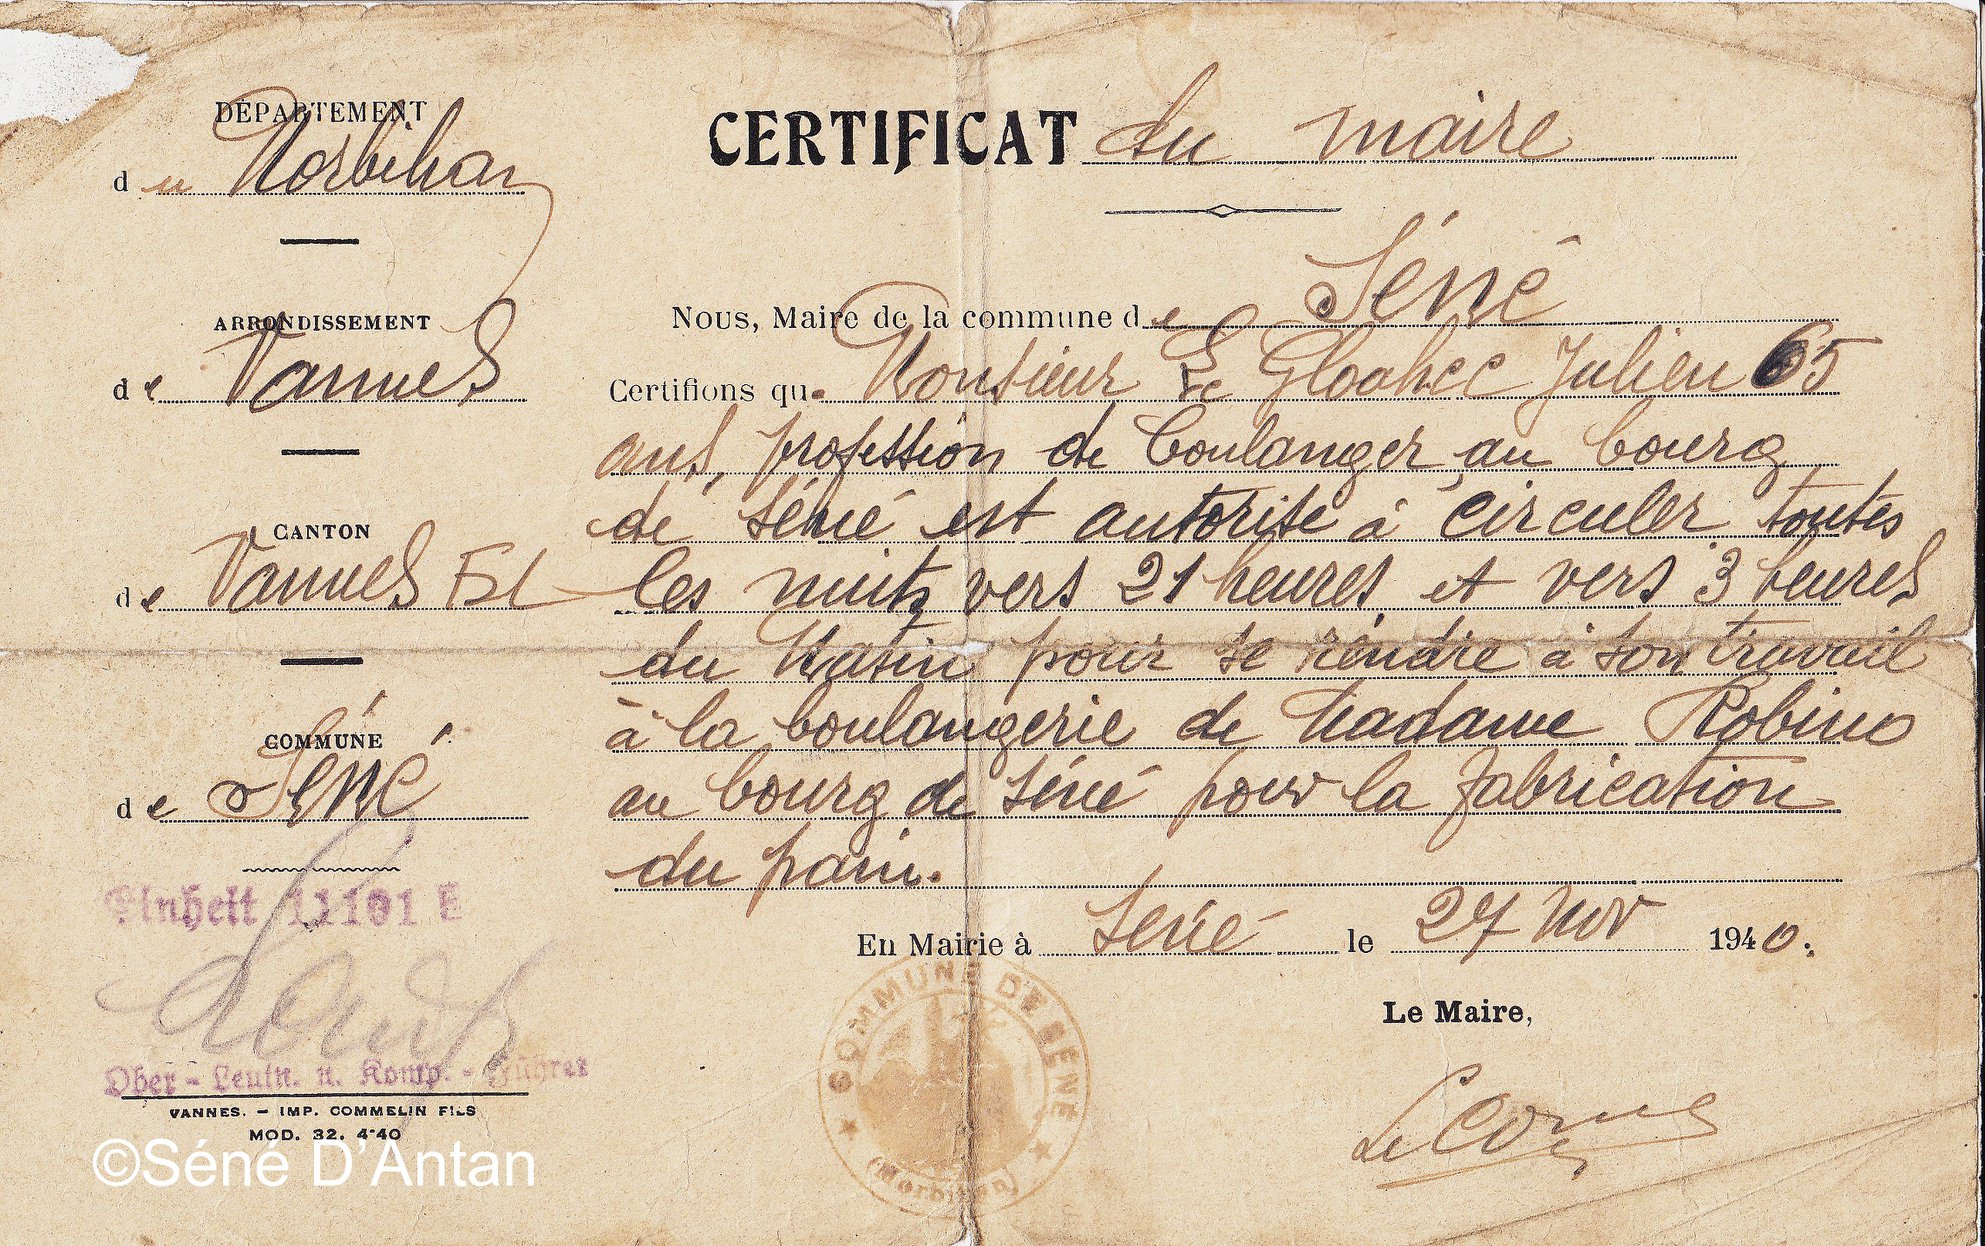 DÉPARTEMENT
du Morbihan
ARRONDISSEMENT
de Vannes
CANTON
de Vannes Est
COMMUNE
de Séné
Einheit 11101 E
Ober-Leutn. u. Komp.-Führer
VANNES. – IMP. COMMELIN FILS
MOD. 32. 4-40
©Séné D'Antan
CERTIFICAT du maire
Nous, Maire de la commune de Séné
Certifions que Monsieur Le Gloahec Julien 65
ans, profession de boulanger au bourg
de Séné est autorisé à circuler toutes
les nuits vers 21 heures et vers 3 heures
du Matin pour se rendre à son travail
à la boulangerie de Madame Robino
au bourg de Séné pour la fabrication
du pain.
En Mairie à Séné le 27 Nov 1940.
Le Maire,
COMMUNE DE SÉNÉ
(Morbihan)